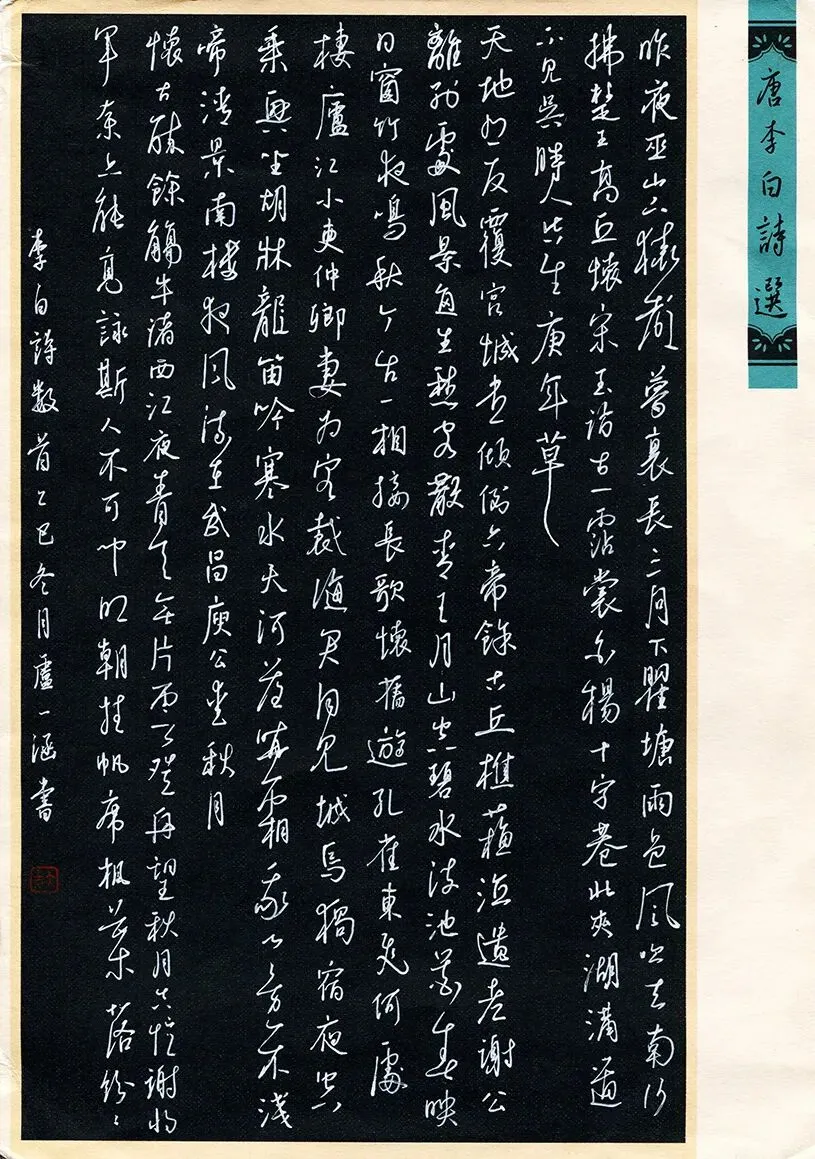 唐李白詩選
昨夜巫山下猿聲夢裏長三月下瞿塘雨色風吹去南行
拂楚王高丘懷宋玉訪古一霑裳白楊十字巷北夾湖溝道
不見吳時人空生唐年草
天地有反覆宮城盡傾倒六帝餘古丘樵蘇泣遺老謝公
離別處風景每生愁客散青天月山空碧水流池花春映
日窗竹夜鳴秋今古一相接長歌懷舊遊孔雀東飛何處
棲廬江小吏仲卿妻為客裁縫君自見城烏獨宿夜空
乘興坐胡牀龍笛吟寒水天河落曉霜我心還不淺
啼清景南樓夜風流在武昌庾公愛秋月
懷古醉餘觴牛渚西江夜青天無片雲登舟望秋月空憶謝將
軍余亦能高詠斯人不可聞明朝挂帆席楓葉落紛〻
李白詩數首乙巳冬月盧一涵書